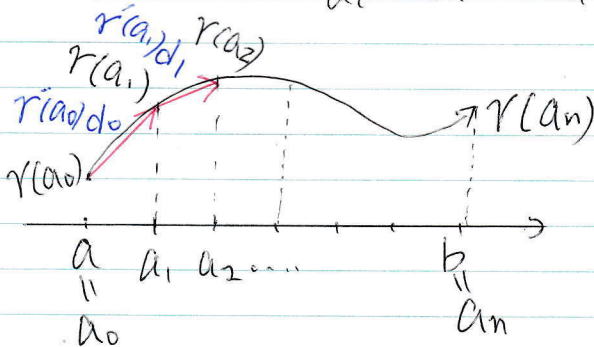 r'(a₁)d₁ r(a₂)
r(a₁)
r'(a₀)d₀
r(aₙ)
r(a₀)
a a₁ a₂ .... b
॥ ॥
a₀ aₙ